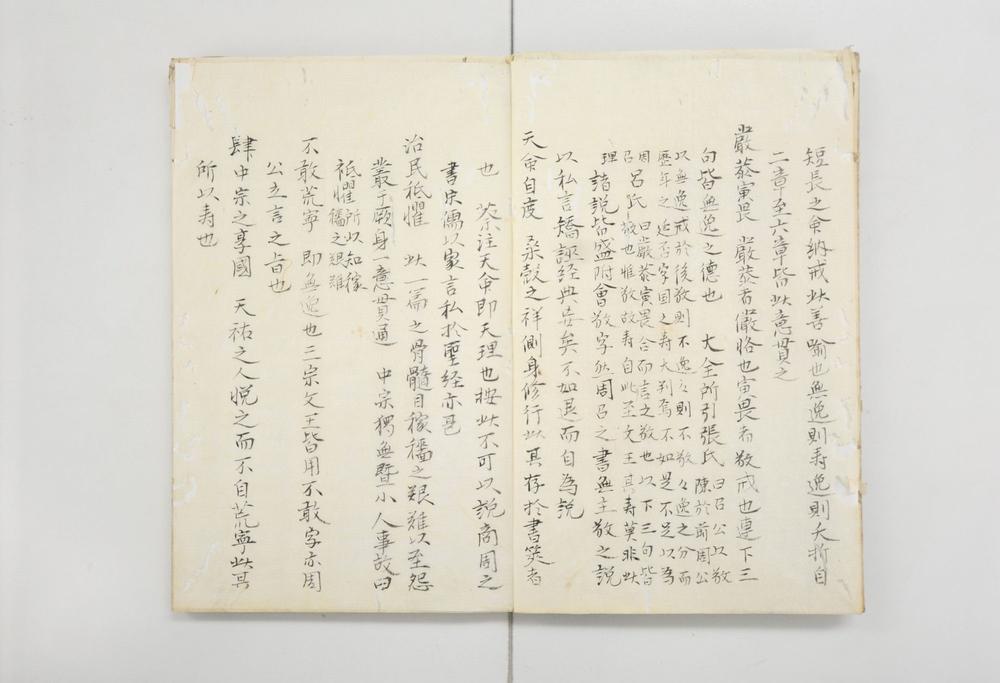 短長之命納戒此善喻也無逸則寿逸則夭折自
二章至六章皆此意貫之
嚴恭寅畏　嚴恭者儼恪也寅畏者敬戒也連下三
句皆無逸之德也　大全所引張氏曰召公以敬陳於前周公
以無逸戒於後敬則不逸々則不敬々逸之分而
歷年之延否享国之寿夭判焉不如是不足以為
周召呂氏曰嚴恭寅畏合而言之敬也以下三句皆
敬也惟敬故寿自此至文王其寿莫非此
理諸說皆盛附會敬字然周召之書無主敬之說
以私言矯誣経典甚矣不如退而自為說
天命自度　桑穀之祥側身修行此其存於書筵者
也　蔡注天命即天理也按此不可以說商周之
書宋儒以家言私於聖経亦是
治民祗懼　此一篇之骨髓目稼穡之艱難以至怨
叢于厥身一意貫通　中宗獨無曁小人事故曰
祗懼所以知稼穡之艱難
不敢荒寧　即無逸也三宗文王皆用不敢字亦周
公立言之旨也
肆中宗之享國　天祐之人悅之而不自荒寧此其
所以寿也